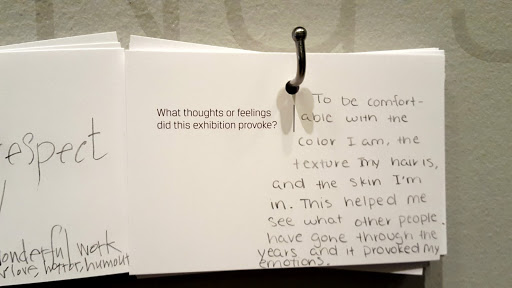 What thoughts or feelings
did this exhibition provoke?
To be comfort-
able with the
color I am, the
texture my hair is,
and the skin I'm
in. This helped me
see what other people
have gone through the
years and it provoked my
emotions.
respect
wonderful work
love, horror, humour